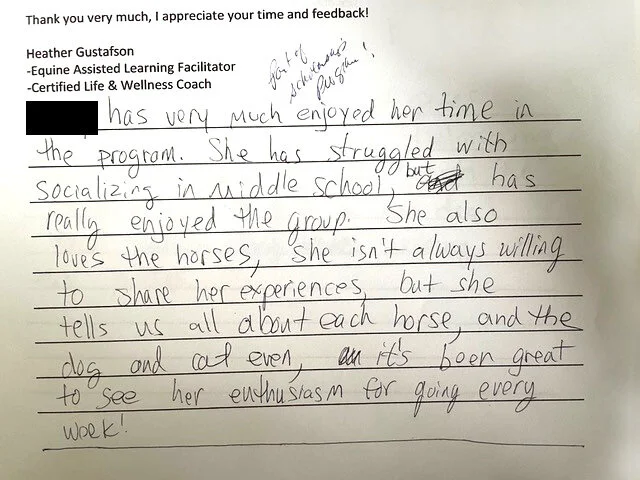 Thank you very much, I appreciate your time and feedback!
Heather Gustafson
-Equine Assisted Learning Facilitator
-Certified Life & Wellness Coach
part of
program!
has very much enjoyed her time in
the program. She has struggled with
socializing in middle school, but has
really enjoyed the group. She also
loves the horses, she isn't always willing
to share her experiences, but she
tells us all about each horse, and the
dog and cat even, it's been great
to see her enthusiasm for going every
week!